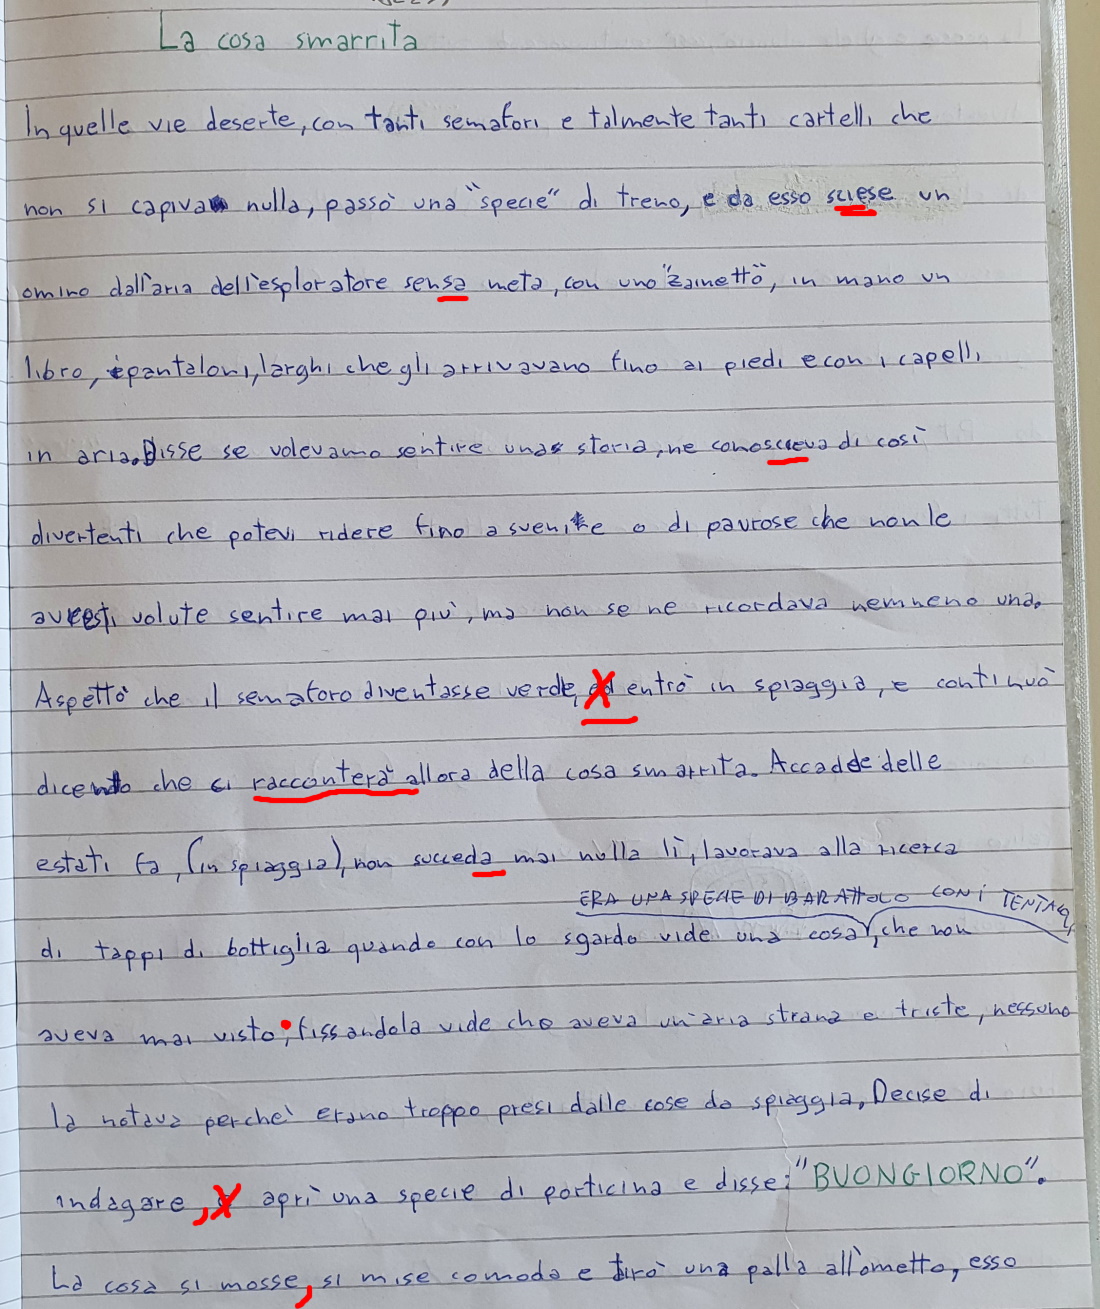 La cosa smarrita
In quelle vie deserte, con tanti semafori e talmente tanti cartelli che
non si capiva nulla, passò una "specie" di treno, e da esso sciese un
omino dall'aria dell'esploratore sensa meta, con uno "zainetto", in mano un
libro, pantaloni, larghi che gli arrivavano fino ai piedi e con i capelli
in aria. Disse se volevamo sentire una storia, ne conosceva di così
divertenti che potevi ridere fino a svenire o di paurose che non le
avresti volute sentire mai più, ma non se ne ricordava nemneno una.
Aspettò che il semaforo diventasse verde, entrò in spiaggia, e continuò
dicendo che ci racconterà allora della cosa smarrita. Accadde delle
estati fa, (in spiaggia), non succeda mai nulla lì, lavorava alla ricerca
ERA UNA SPECIE DI BARATTOLO CON I TENTACOLI
di tappi di bottiglia quando con lo sgardo vide una cosa, che non
aveva mai visto; fissandola vide che aveva un'aria strana e triste, nessuno
la notava perchè erano troppo presi dalle cose da spiaggia, Decise di
indagare, aprì una specie di porticina e disse: "BUONGIORNO".
La cosa si mosse, si mise comoda e tirò una palla all'ometto, esso